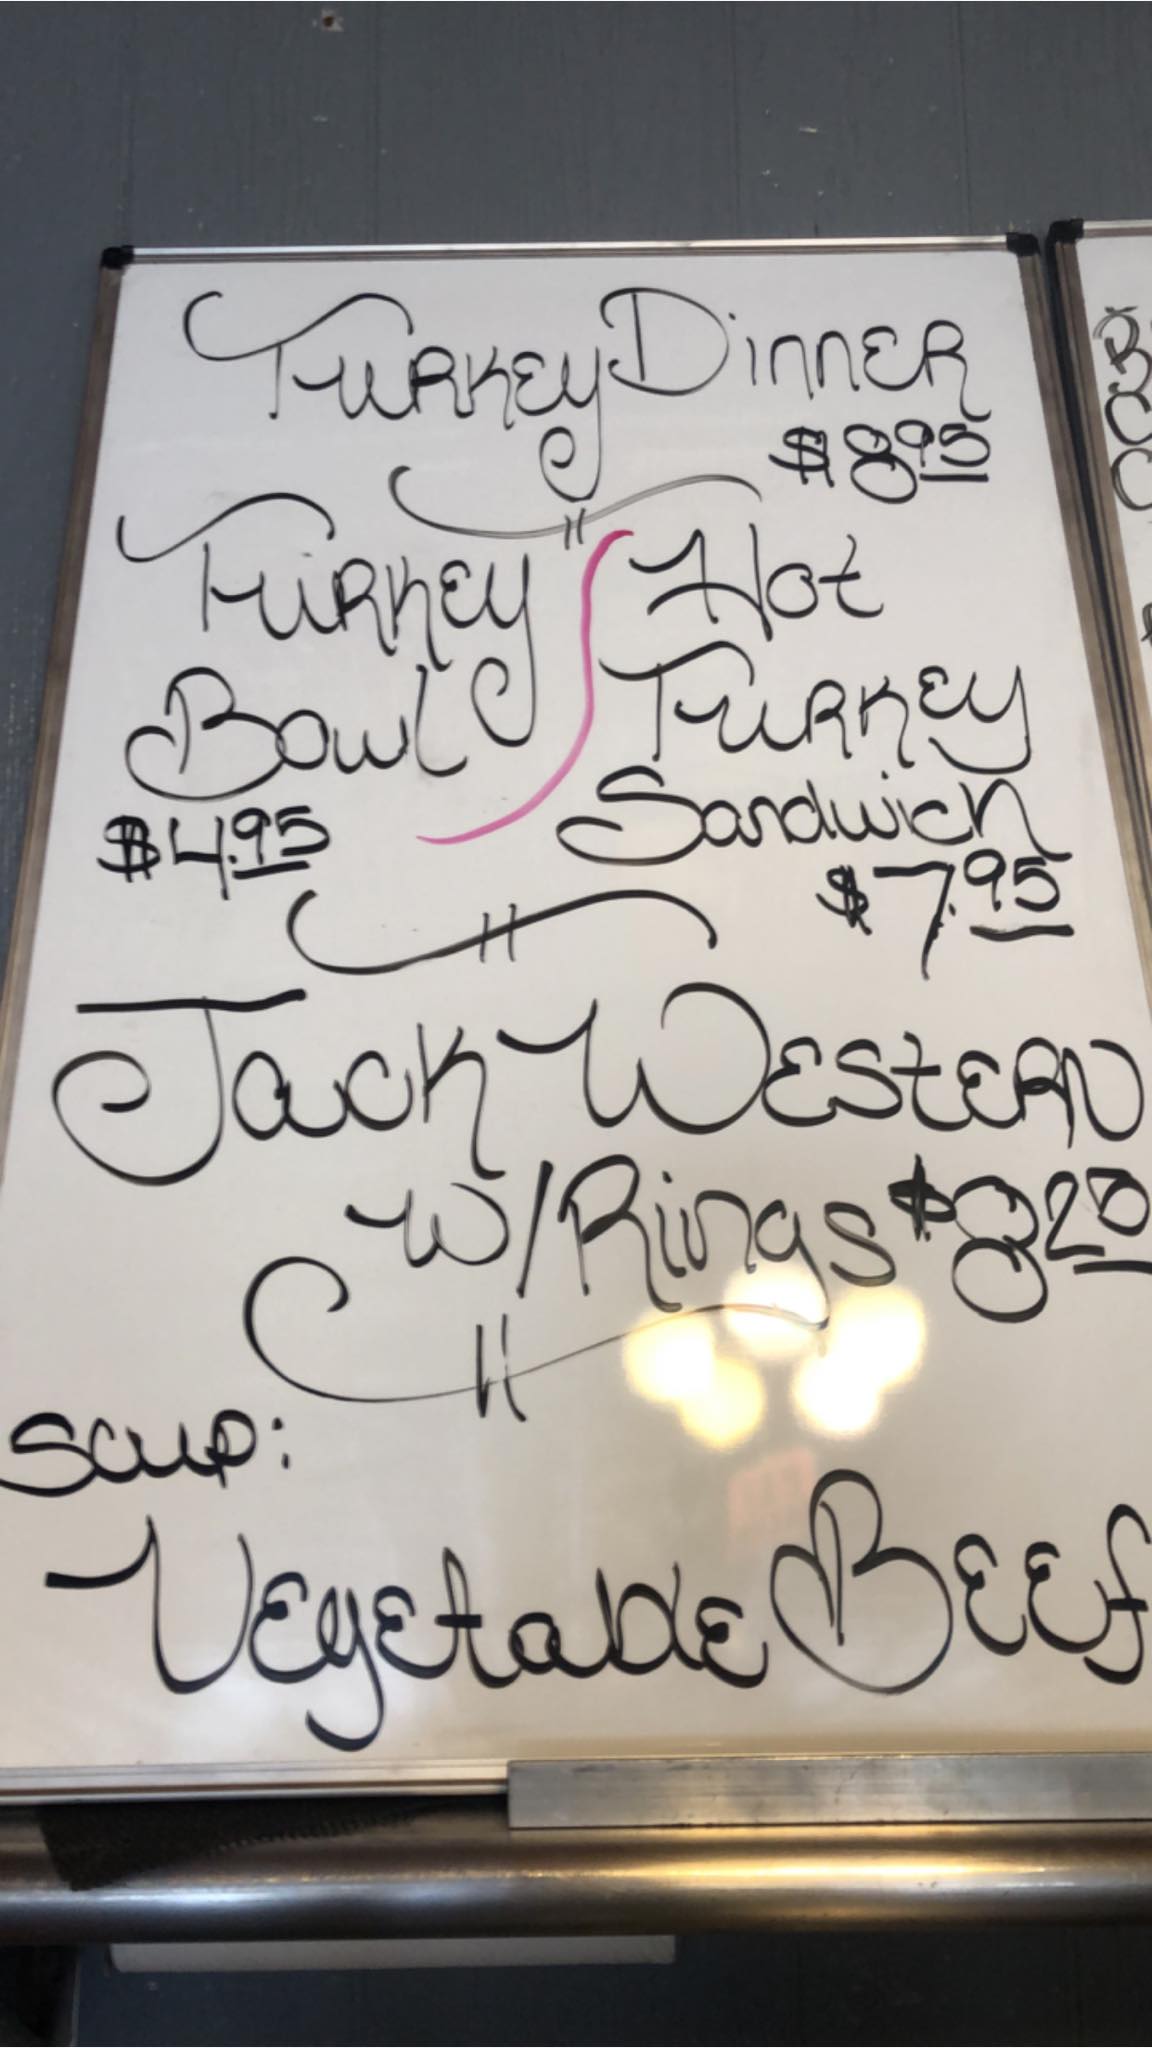 Turkey Dinner
$8.95
Turkey
Bowl
$4.95
Hot
Turkey
Sandwich
$7.95
Jack Western
w/Rings $8.20
Soup:
Vegetable Beef